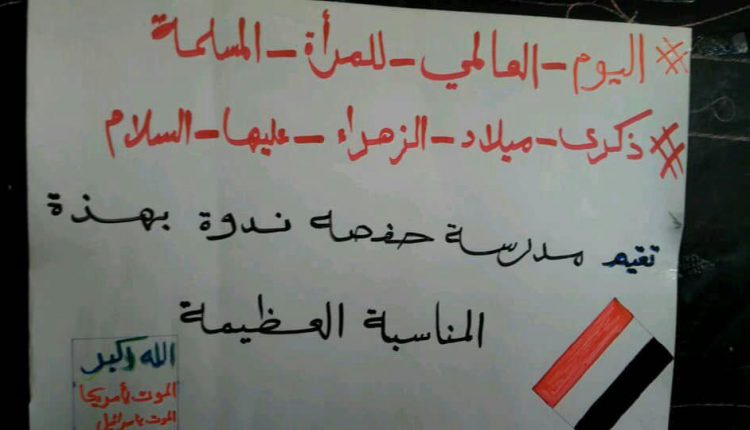 #اليوم-العالمي-للمرأة-المسلمة
#ذكرى-ميلاد-الزهراء-عليها-السلام
تقيم مدرسة حفصه ندوة بهذة
المناسبة العظيمة
الله أكبر
الموت لأمريكا
الموت لإسرائيل